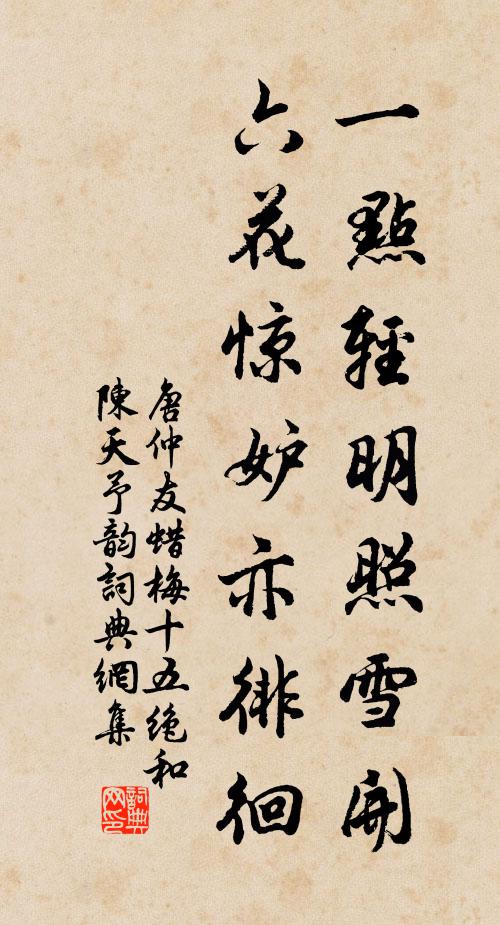 一點輕明照雪開
六花惊妒亦徘徊
唐仲友蜡梅十五绝和
陳天予韵詞典網集
詞典
网印